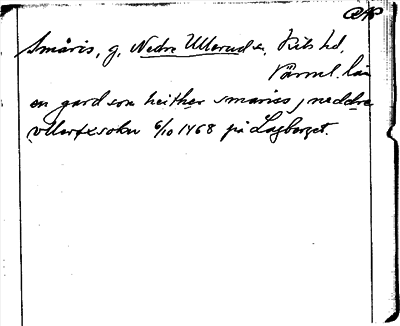 Småris, g, Nedre Ullerud sn, Kils hd,
Värml. län
en gard som heither smariss j neddre
vllerixsokn 6/10 1468 på Lagberget.